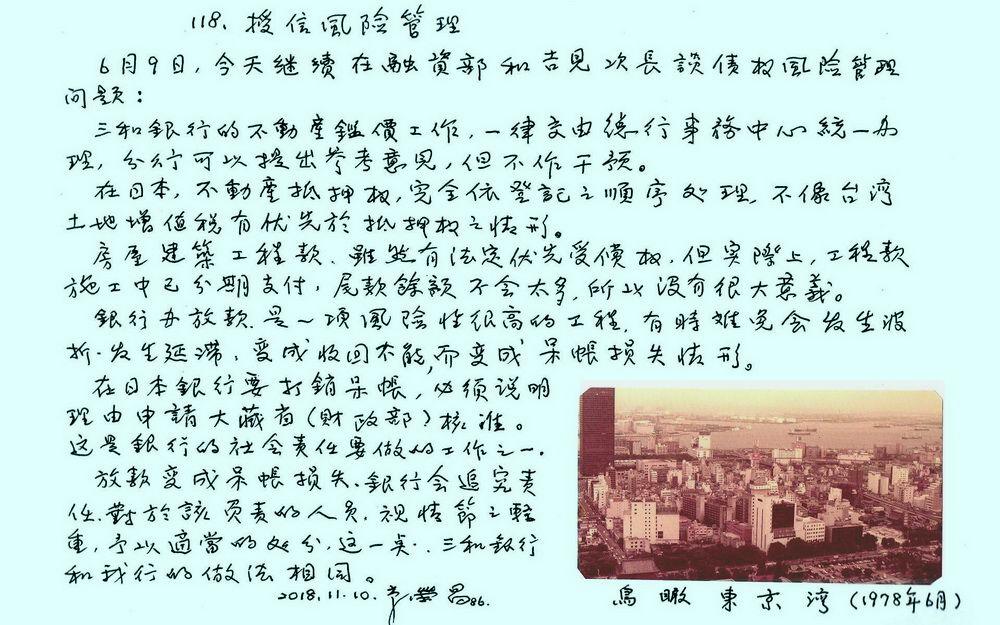 118. 授信風险管理
6月9日,今天継續在融資部和吉見次長談债权風险管理
问题:
三和銀行的不動產鑑價工作,一律交由總行事務中心統一办
理,分行可以提出参考意見,但不作干预。
在日本,不動產抵押权,完全依登記之順序处理,不像台湾
土地增值税有优先於抵押权之情形。
房屋建築工程款.雖然有法定优先受償权,但实際上,工程款
施工中已分期支付,尾款餘額不会太多,所以沒有很大意義。
銀行办放款.是一项風险性很高的工程,有時难免会发生波
折.发生延滞,变成收回不能,而变成呆帳損失情形。
在日本銀行要打銷呆帳,必须说明
理由申請大藏省(財政部)核准。
这是銀行的社会責任要做的工作之一.
放款变成呆帳損失.銀行会追究責
任.對於該负责的人员.視情節之軽
重,予以適當的处分,这一点.三和銀行
和我行的做法相同。
2018.11.10. 榮昌86.
鳥瞰東京湾(1978年6月)